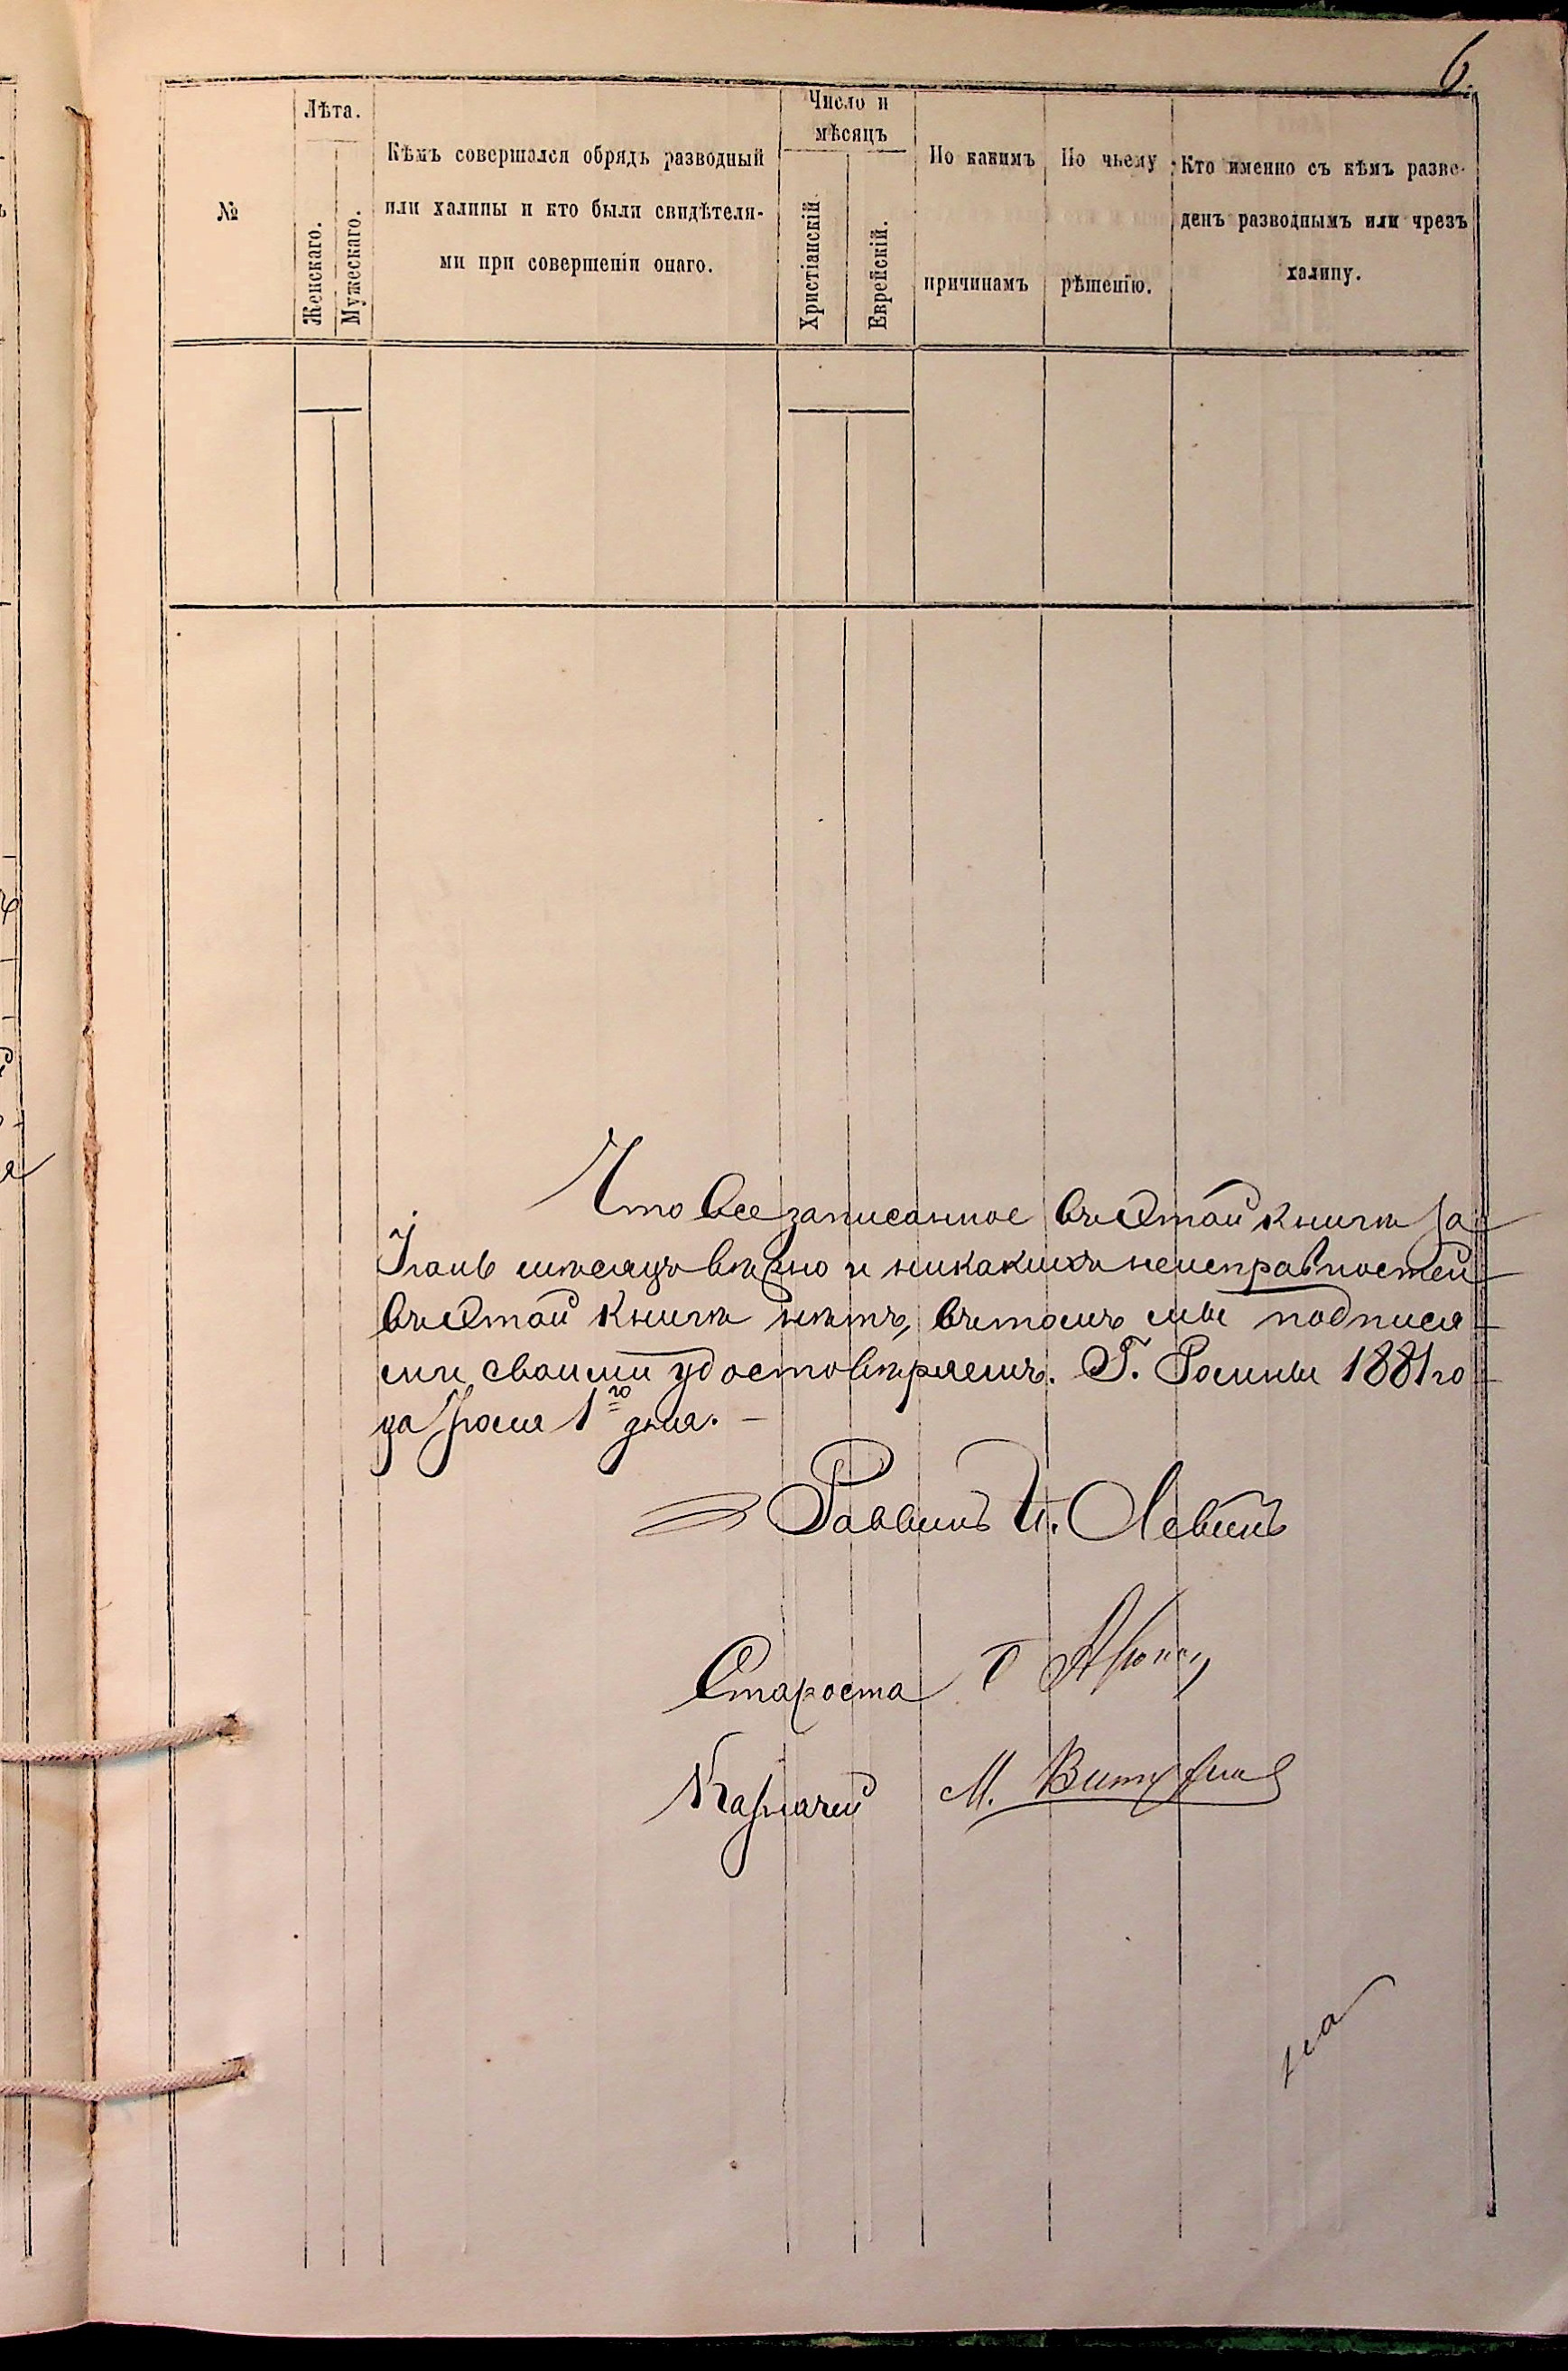 6.
№
Лѣта.
Женскаго.
Мужескаго.
Кѣмъ совершался обрядъ разводный
или халицы и кто были свидѣтеля-
ми при совершеніи онаго.
Число и
мѣсяцъ
Христіанскій.
Еврейскій.
По какимъ
причинамъ
По чьему
рѣшенію.
Кто именно съ кѣмъ разве-
денъ разводнымъ или чрезъ
халицу.
Что все записанное въ этой книгѣ за
Іюнь мѣсяцъ вѣрно и никакихъ неисправностей
въ этой книгѣ нѣтъ, въ томъ мы подпися-
ми своими удостовѣряемъ. Г. Ромны 1881 го-
да Іюля 1го дня. —
Раввинъ И. Левинъ
Староста
Казначей М.